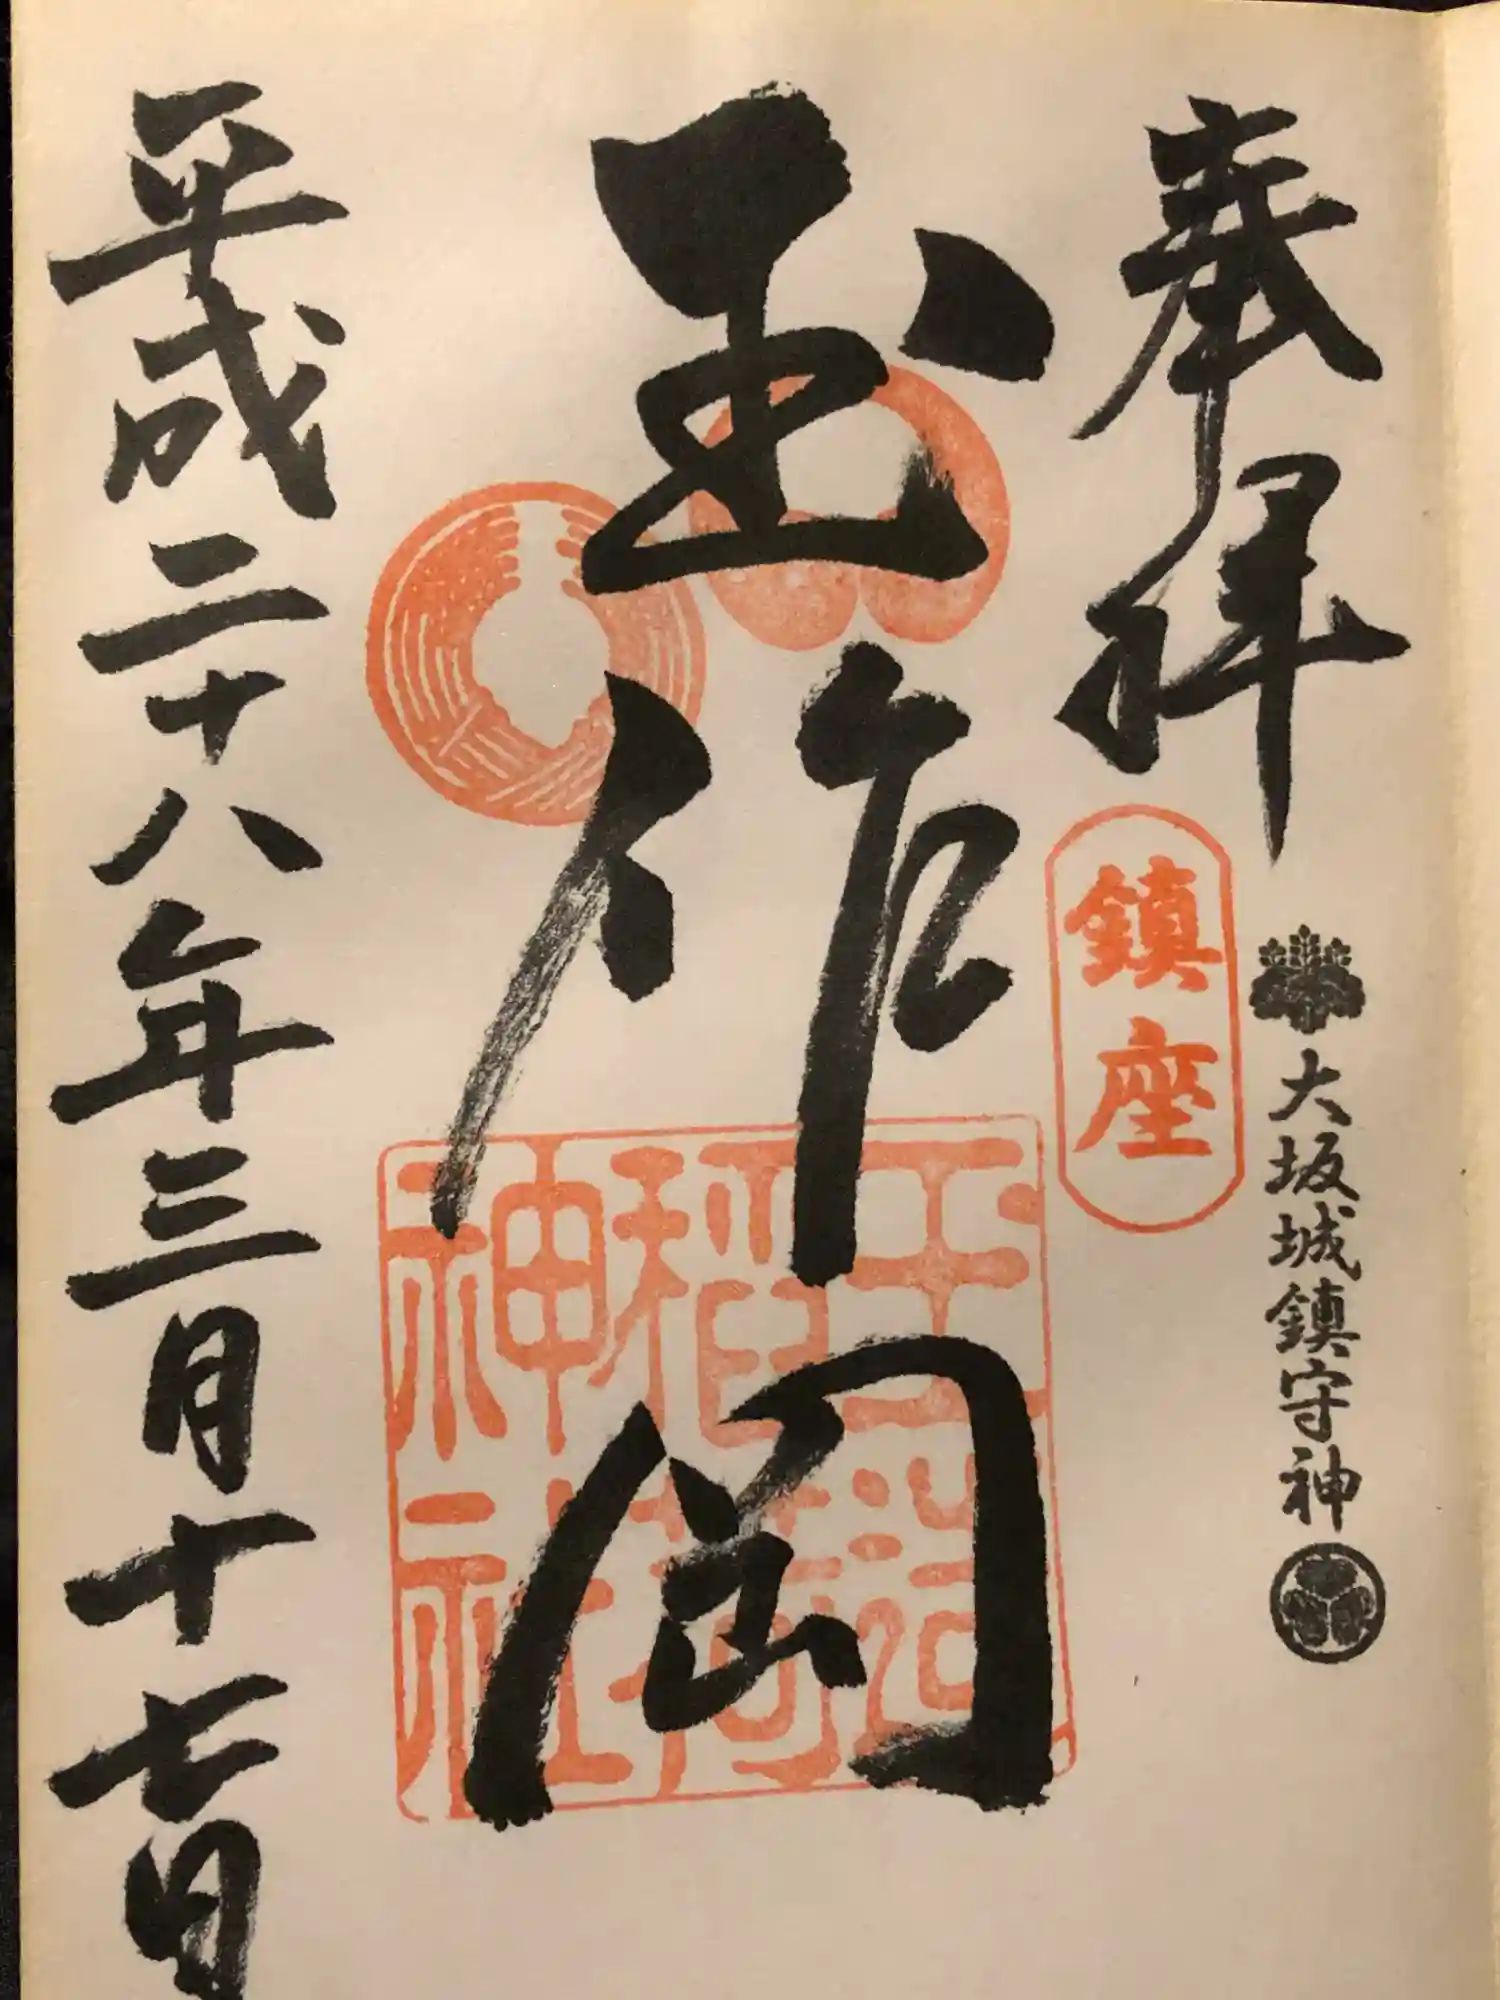 奉拝
大坂城鎮守神
鎮座
玉作岡
玉造
稲荷
神社
平成二十八年三月十七日